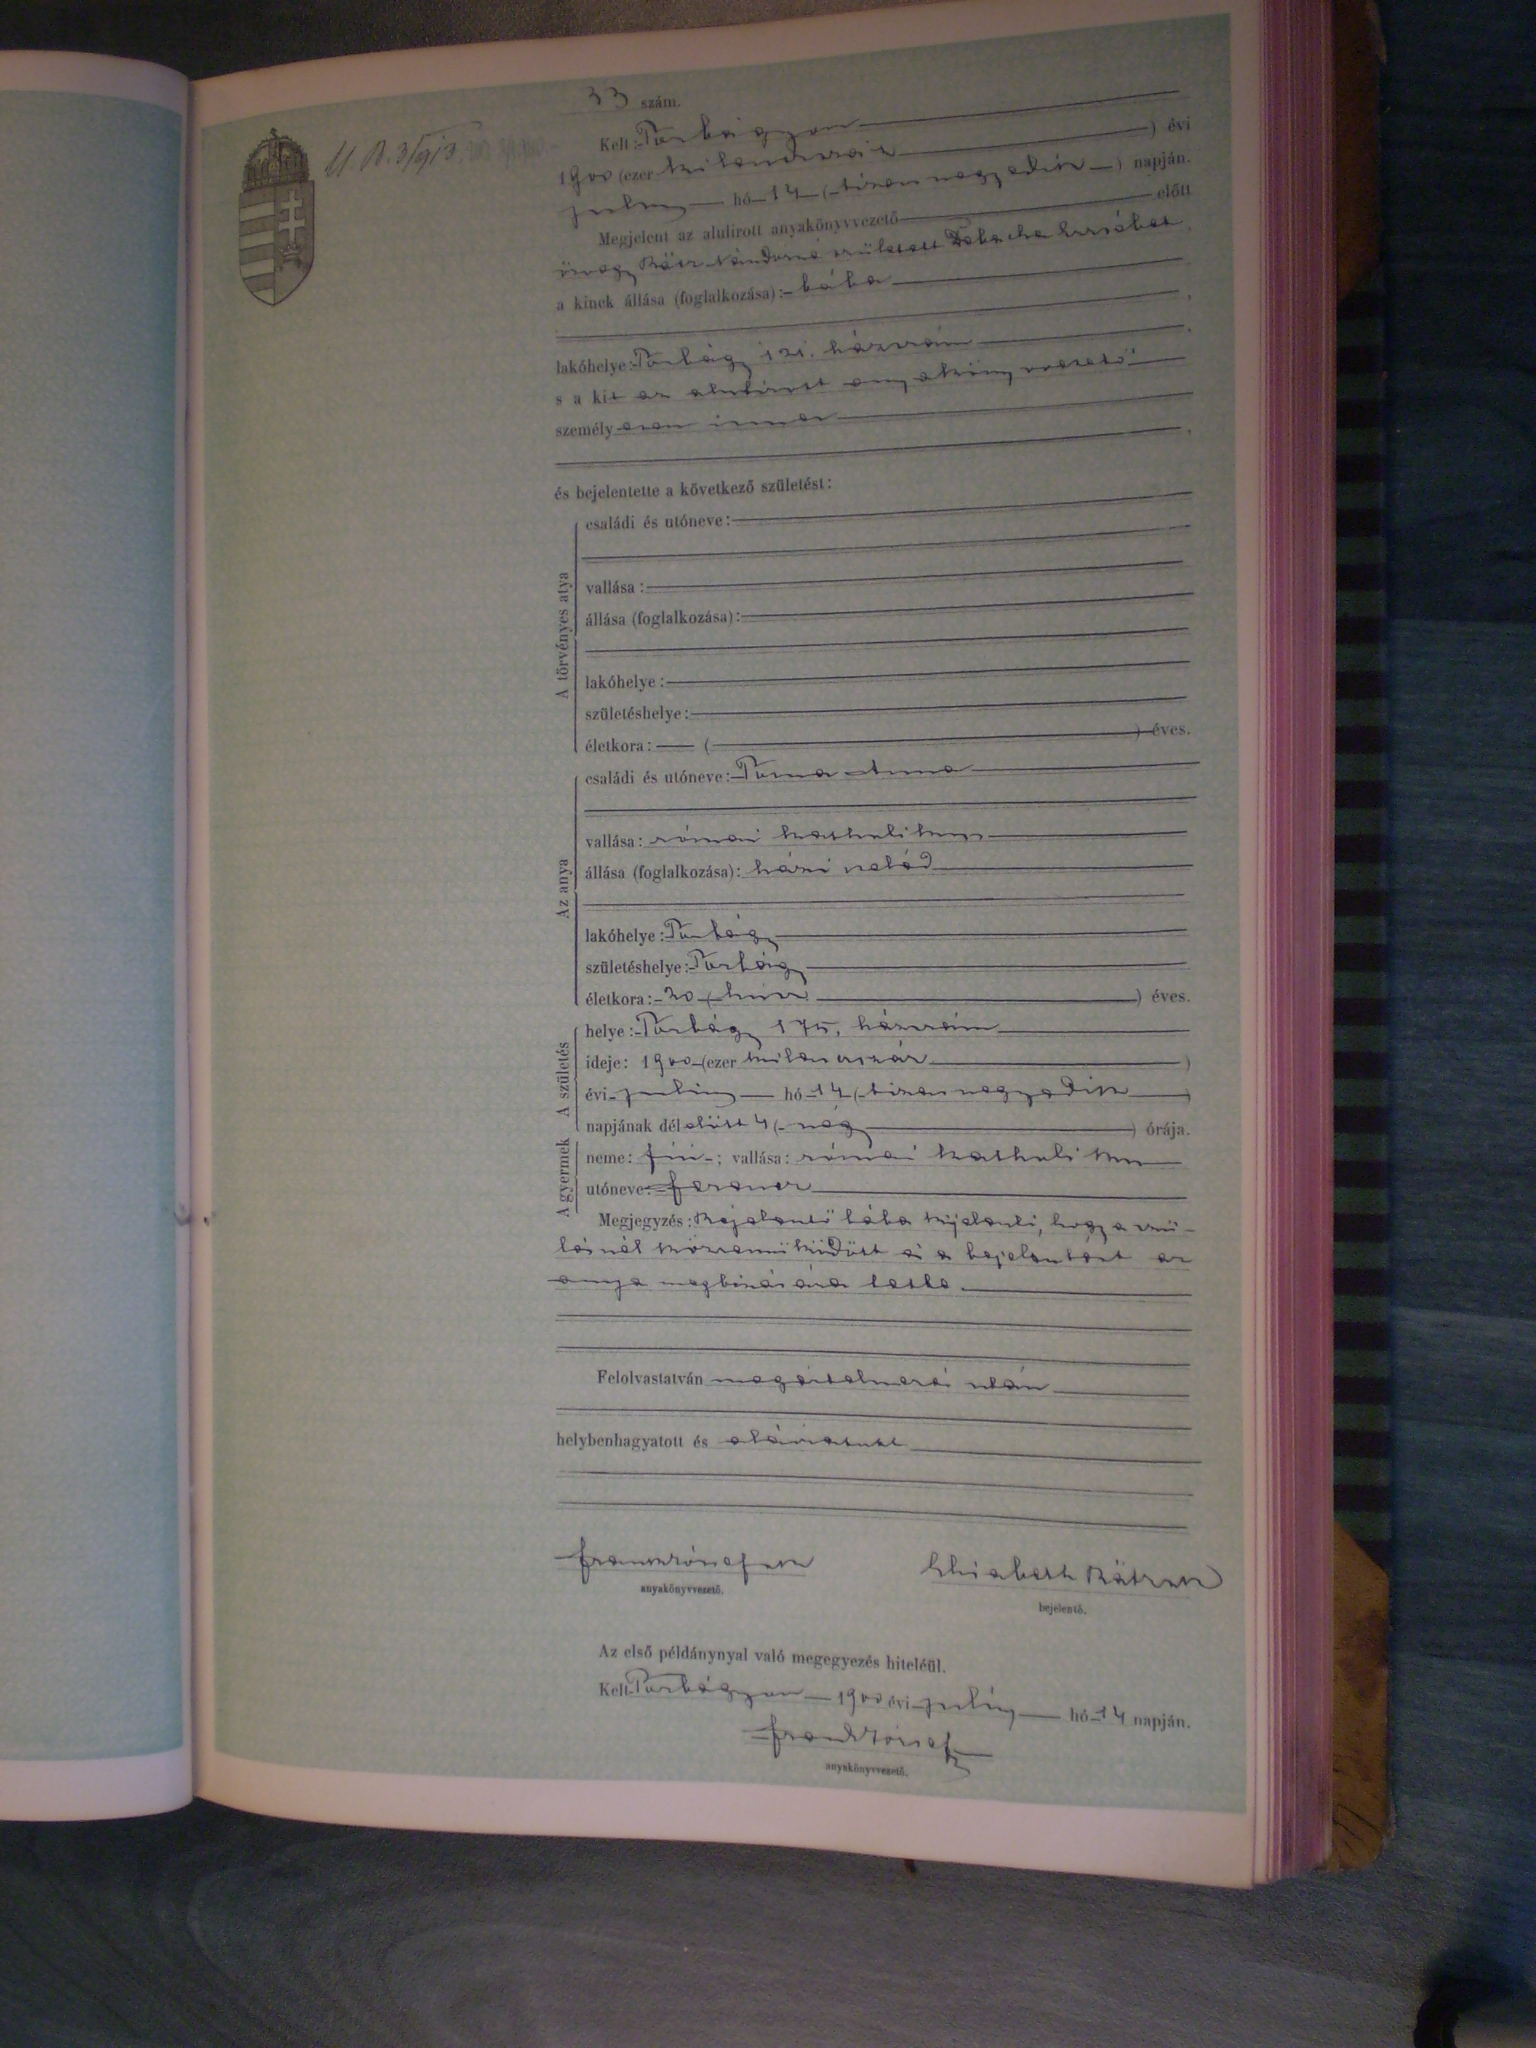 33 szám.
Kelt: Torbágyon
1900 (ezer kilenczszáz ) évi
julius hó 14 (tizennegyedik) napján.
Megjelent az alulirott anyakönyvvezető előtt
özvegy Rátz Nándorné született Erzsébet,
a kinek állása (foglalkozása): bába
lakóhelye: Torbágy 121. házszám
s a kit az alulirott anyakönyvvezető
személyesen ismer
és bejelentette a következő születést:
A törvényes atya
családi és utóneve:
vallása:
állása (foglalkozása):
lakóhelye:
születéshelye:
életkora: ( ) éves.
Az anya
családi és utóneve: Anna
vallása: római katholikus
állása (foglalkozása): házi cseléd
lakóhelye: Torbágy
születéshelye: Torbágy
életkora: 20 (húsz ) éves.
A születés
helye: Torbágy 175. házszám
ideje: 1900 (ezer kilenczszáz )
évi julius hó 14 (tizennegyedik )
napjának délelőtt 4 (négy ) órája.
A gyermek
neme: fiú; vallása: római katholikus
utóneve: Ferencz
Megjegyzés: Bejelentő bába kijelenti, hogy a szü-
lésnél közreműködött és a bejelentést az
anya megbizására tette.
Felolvastatván megértelmezés után
helybenhagyatott és aláiratott
Frank József
anyakönyvvezető.
Elisabeth Rätz
bejelentő.
Az első példánynyal való megegyezés hiteléül.
Kelt Torbágyon 1900 évi julius hó 14 napján.
Frank József
anyakönyvvezető.